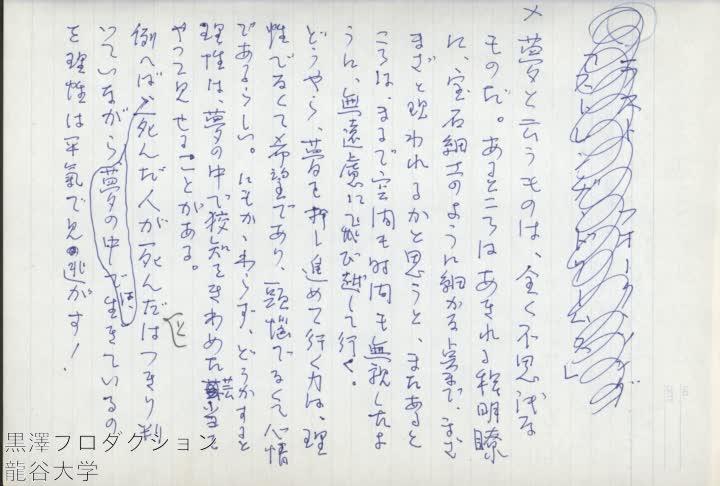 ×夢と云うものは、全く不思議な
ものだ。あるところはあきれる程明瞭
に、宝石細工のように細かる点まで、まざ
まざと現われるかと思うと、またあると
ころは、まるで空間も時間も無視したよ
うに、無遠慮に飛び越して行く。
どうやら、夢を押し進めて行く力は、理
性でなくて希望であり、頭脳でなくて心情
であるらしい。にもかゝわらず、どうかすると
理性は、夢の中で狡知をきわめた芸当を
やって見せることがある。
例へば、死んだ人が死んだとはっきり判
っていながら夢の中では生きているの
を理性は平氣で見逃がす!
黒澤プロダクション
龍谷大学